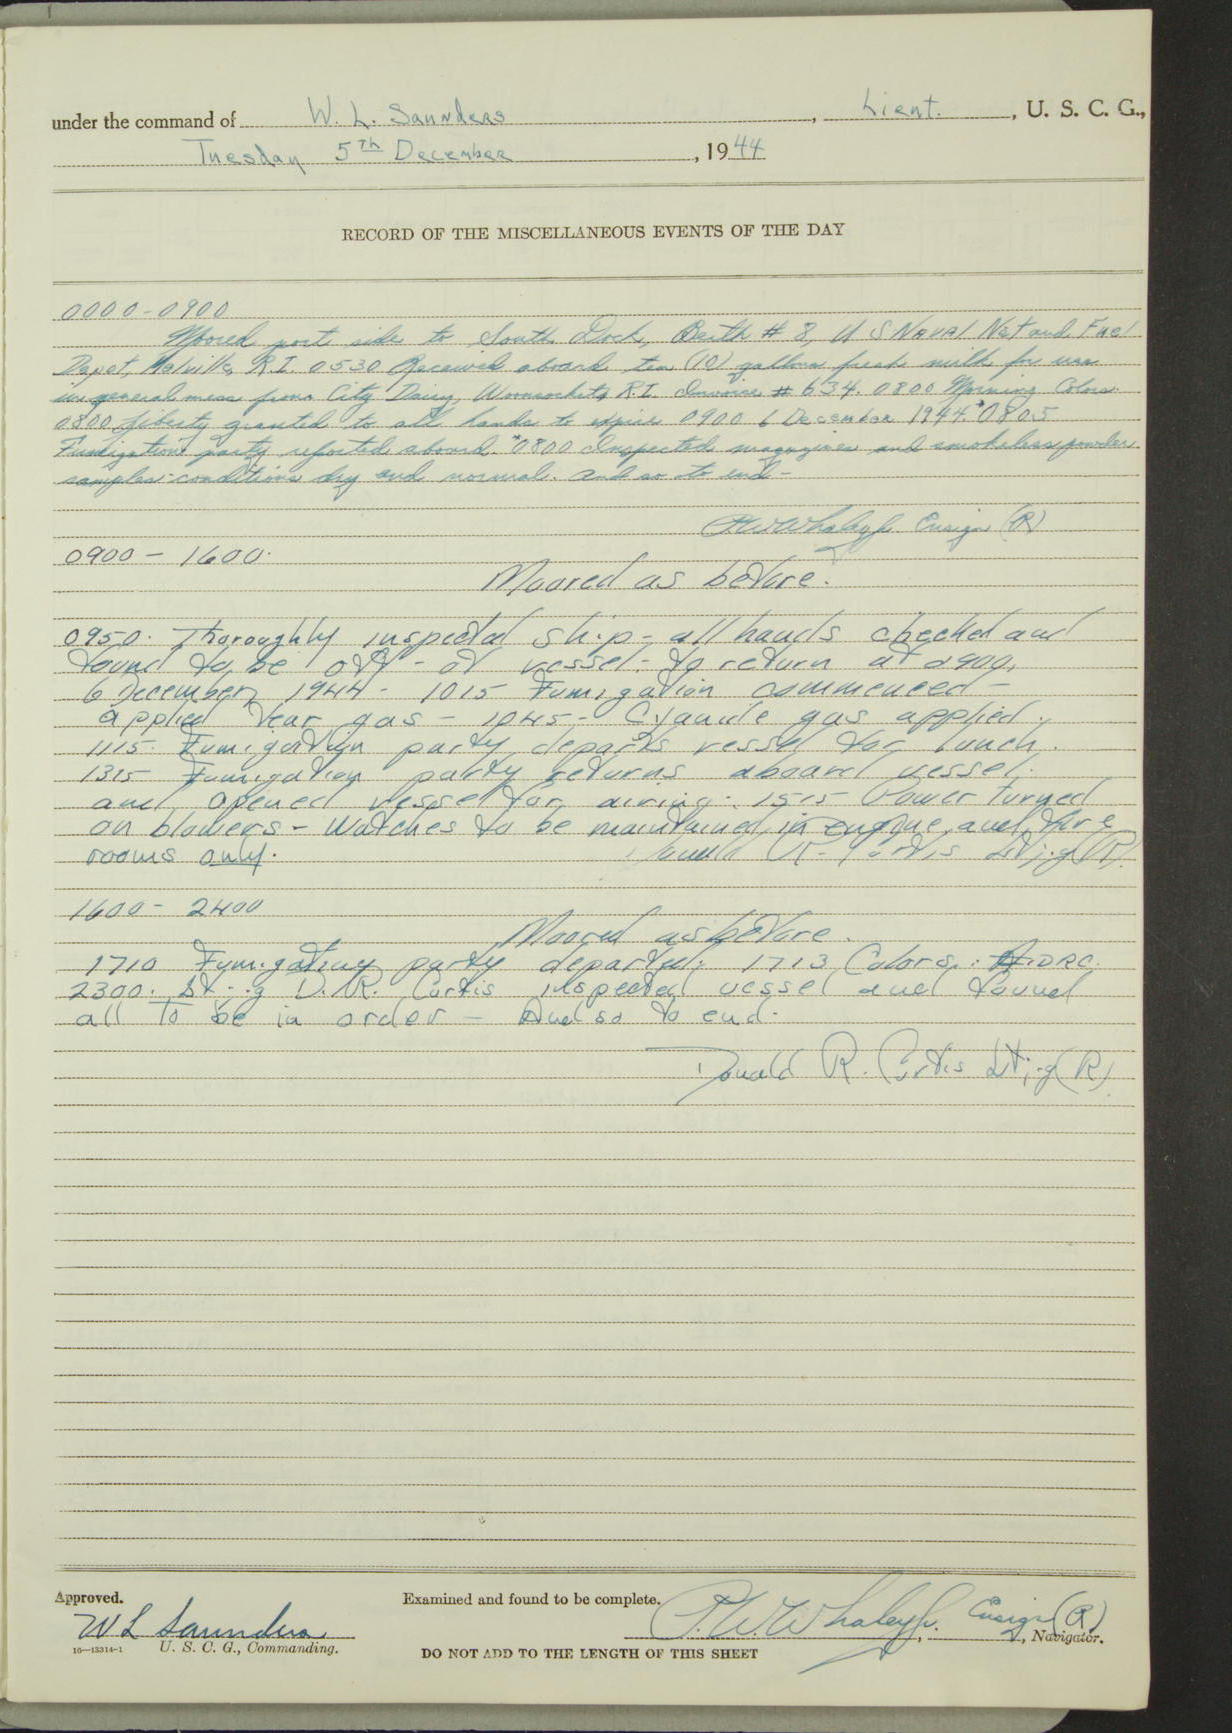 under the command of W. L. Saunders, Lieut., U. S. C. G.,
Tuesday 5th December, 1944
RECORD OF THE MISCELLANEOUS EVENTS OF THE DAY
0000-0900
Moored port side to South Dock, Berth # 8, U S Naval Net and Fuel
Depot, Melville, R.I. 0530 Received aboard ten (10) gallons fresh milk for use
in general mess from City Dairy, Woonsocket, R.I. Invoice # 634. 0800 Morning Colors.
0800 Liberty granted to all hands to expire 0900 6 December 1944. *0805
Fumigation party reported aboard. *0800 Inspected magazines and smokeless powder
samples-conditions dry and normal. And so to end-
P.W. Whaley Jr. Ensign (R)
0900 - 1600.
Moored as before.
0950. Thoroughly inspected ship - all hands checked and
found to be off - of vessel - to return at 0900,
6 December, 1944 - 1015 Fumigation commenced -
applied tear gas - 1045 - Cyanide gas applied.
1115. Fumigation party departs vessel for lunch.
1315 Fumigation party returns aboard vessel.
and opened vessel for airing. 1515 Power turned
on blowers - Watches to be maintained in engine and fire
rooms only. Donald R. Curtis Lt.j.g (R).
1600 - 2400
Moored as before.
1710 Fumigating party departed. 1713 Colors.
2300. Lt. j.g D. R. Curtis inspected vessel and found
all to be in order - And so to end.
Donald R. Curtis Lt.j.g (R)
Approved.
Examined and found to be complete.
W L Saunders
P.W. Whaley Jr., Ensign (R), Navigator.
16—13314-1 U. S. C. G., Commanding.
DO NOT ADD TO THE LENGTH OF THIS SHEET